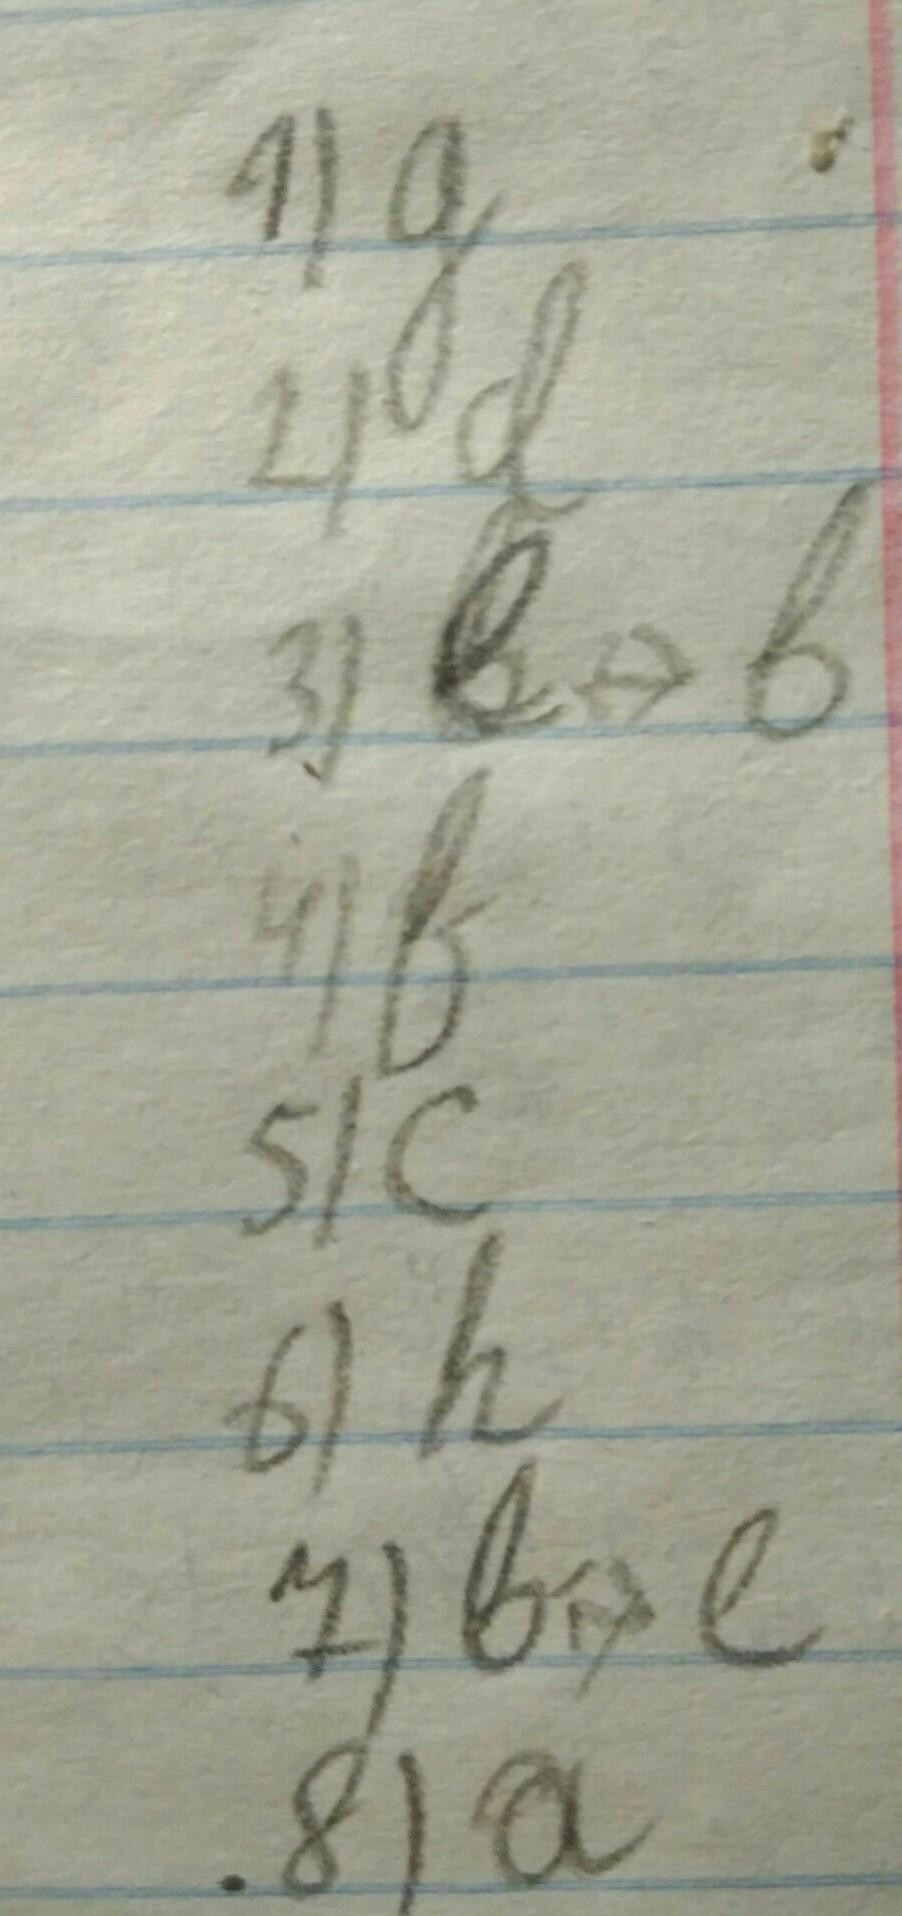 1) g
2) d
3) e ↔ b
4) f
5) c
6) h
7) b ↔ e
8) a